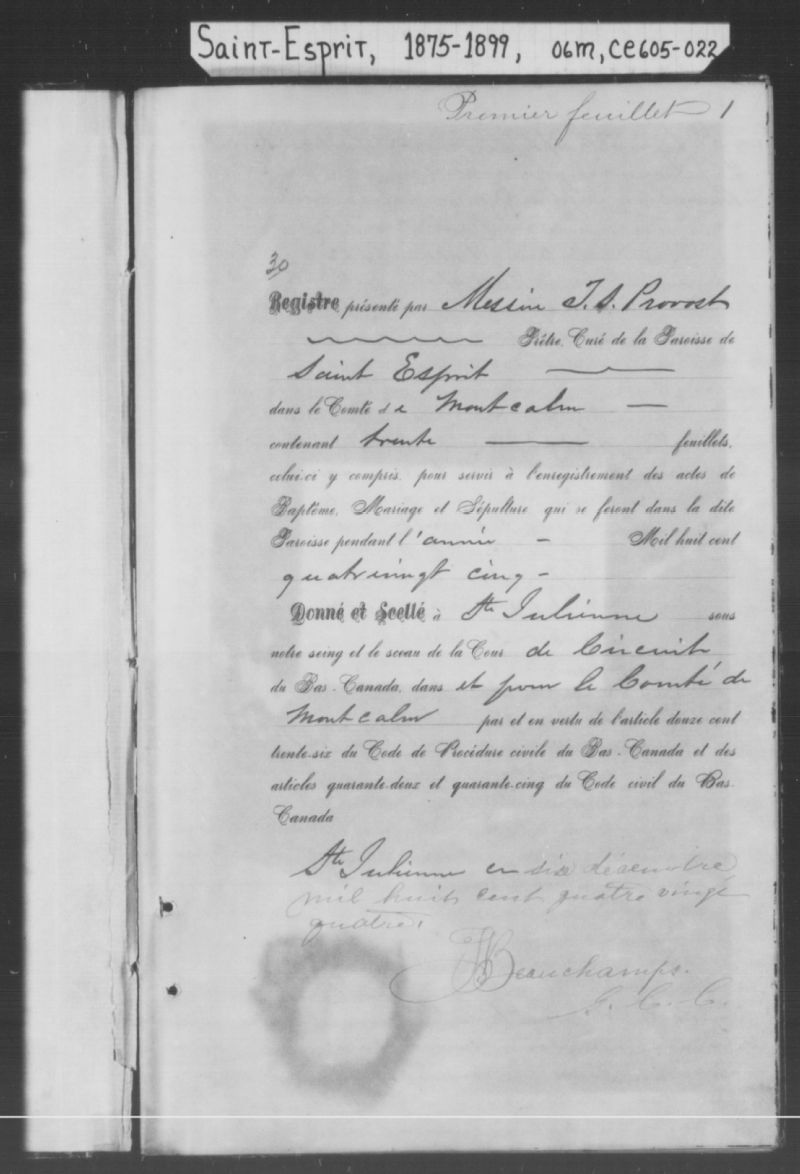 Saint-Esprit, 1875-1899, 06M, CE605-022
Premier feuillet 1
30
Registre présenté par Messire T. S. Provost
Prêtre, Curé de la Paroisse de
Saint Esprit
dans le Comté de Montcalm
contenant trente feuillets,
celui-ci y compris, pour servir à l'enregistrement des actes de
Baptême, Mariage et Sépulture qui se feront dans la dite
Paroisse pendant l'année - Mil huit cent
quatrevingt cinq -
Donné et Scellé à Ste Julienne sous
notre seing et le sceau de la Cour de Circuit
du Bas-Canada, dans et pour le Comté de
Montcalm par et en vertu de l'article douze cent
trente-six du Code de Procédure civile du Bas-Canada et des
articles quarante-deux et quarante-cinq du Code civil du Bas-
Canada
Ste Julienne ce six décembre
mil huit cent quatre vingt
quatre.
Beauchamps.
G. C. C.